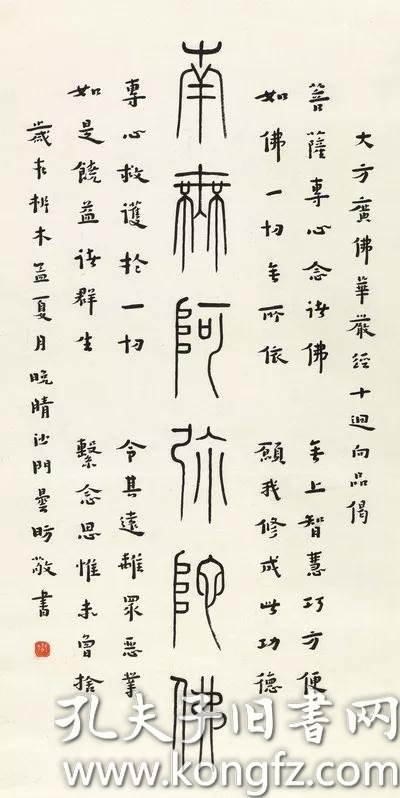 大方廣佛華嚴經十迴向品偈
菩薩專心念諸佛　無上智慧巧方便
如佛一切無所依　願我修成此功德
南無阿弥陀佛
專心救護於一切　令其遠離眾惡業
如是饒益諸群生　繫念思惟未曾捨
歲在析木孟夏月晚晴沙門曇昉敬書
孔夫子旧书网
www.kongfz.com